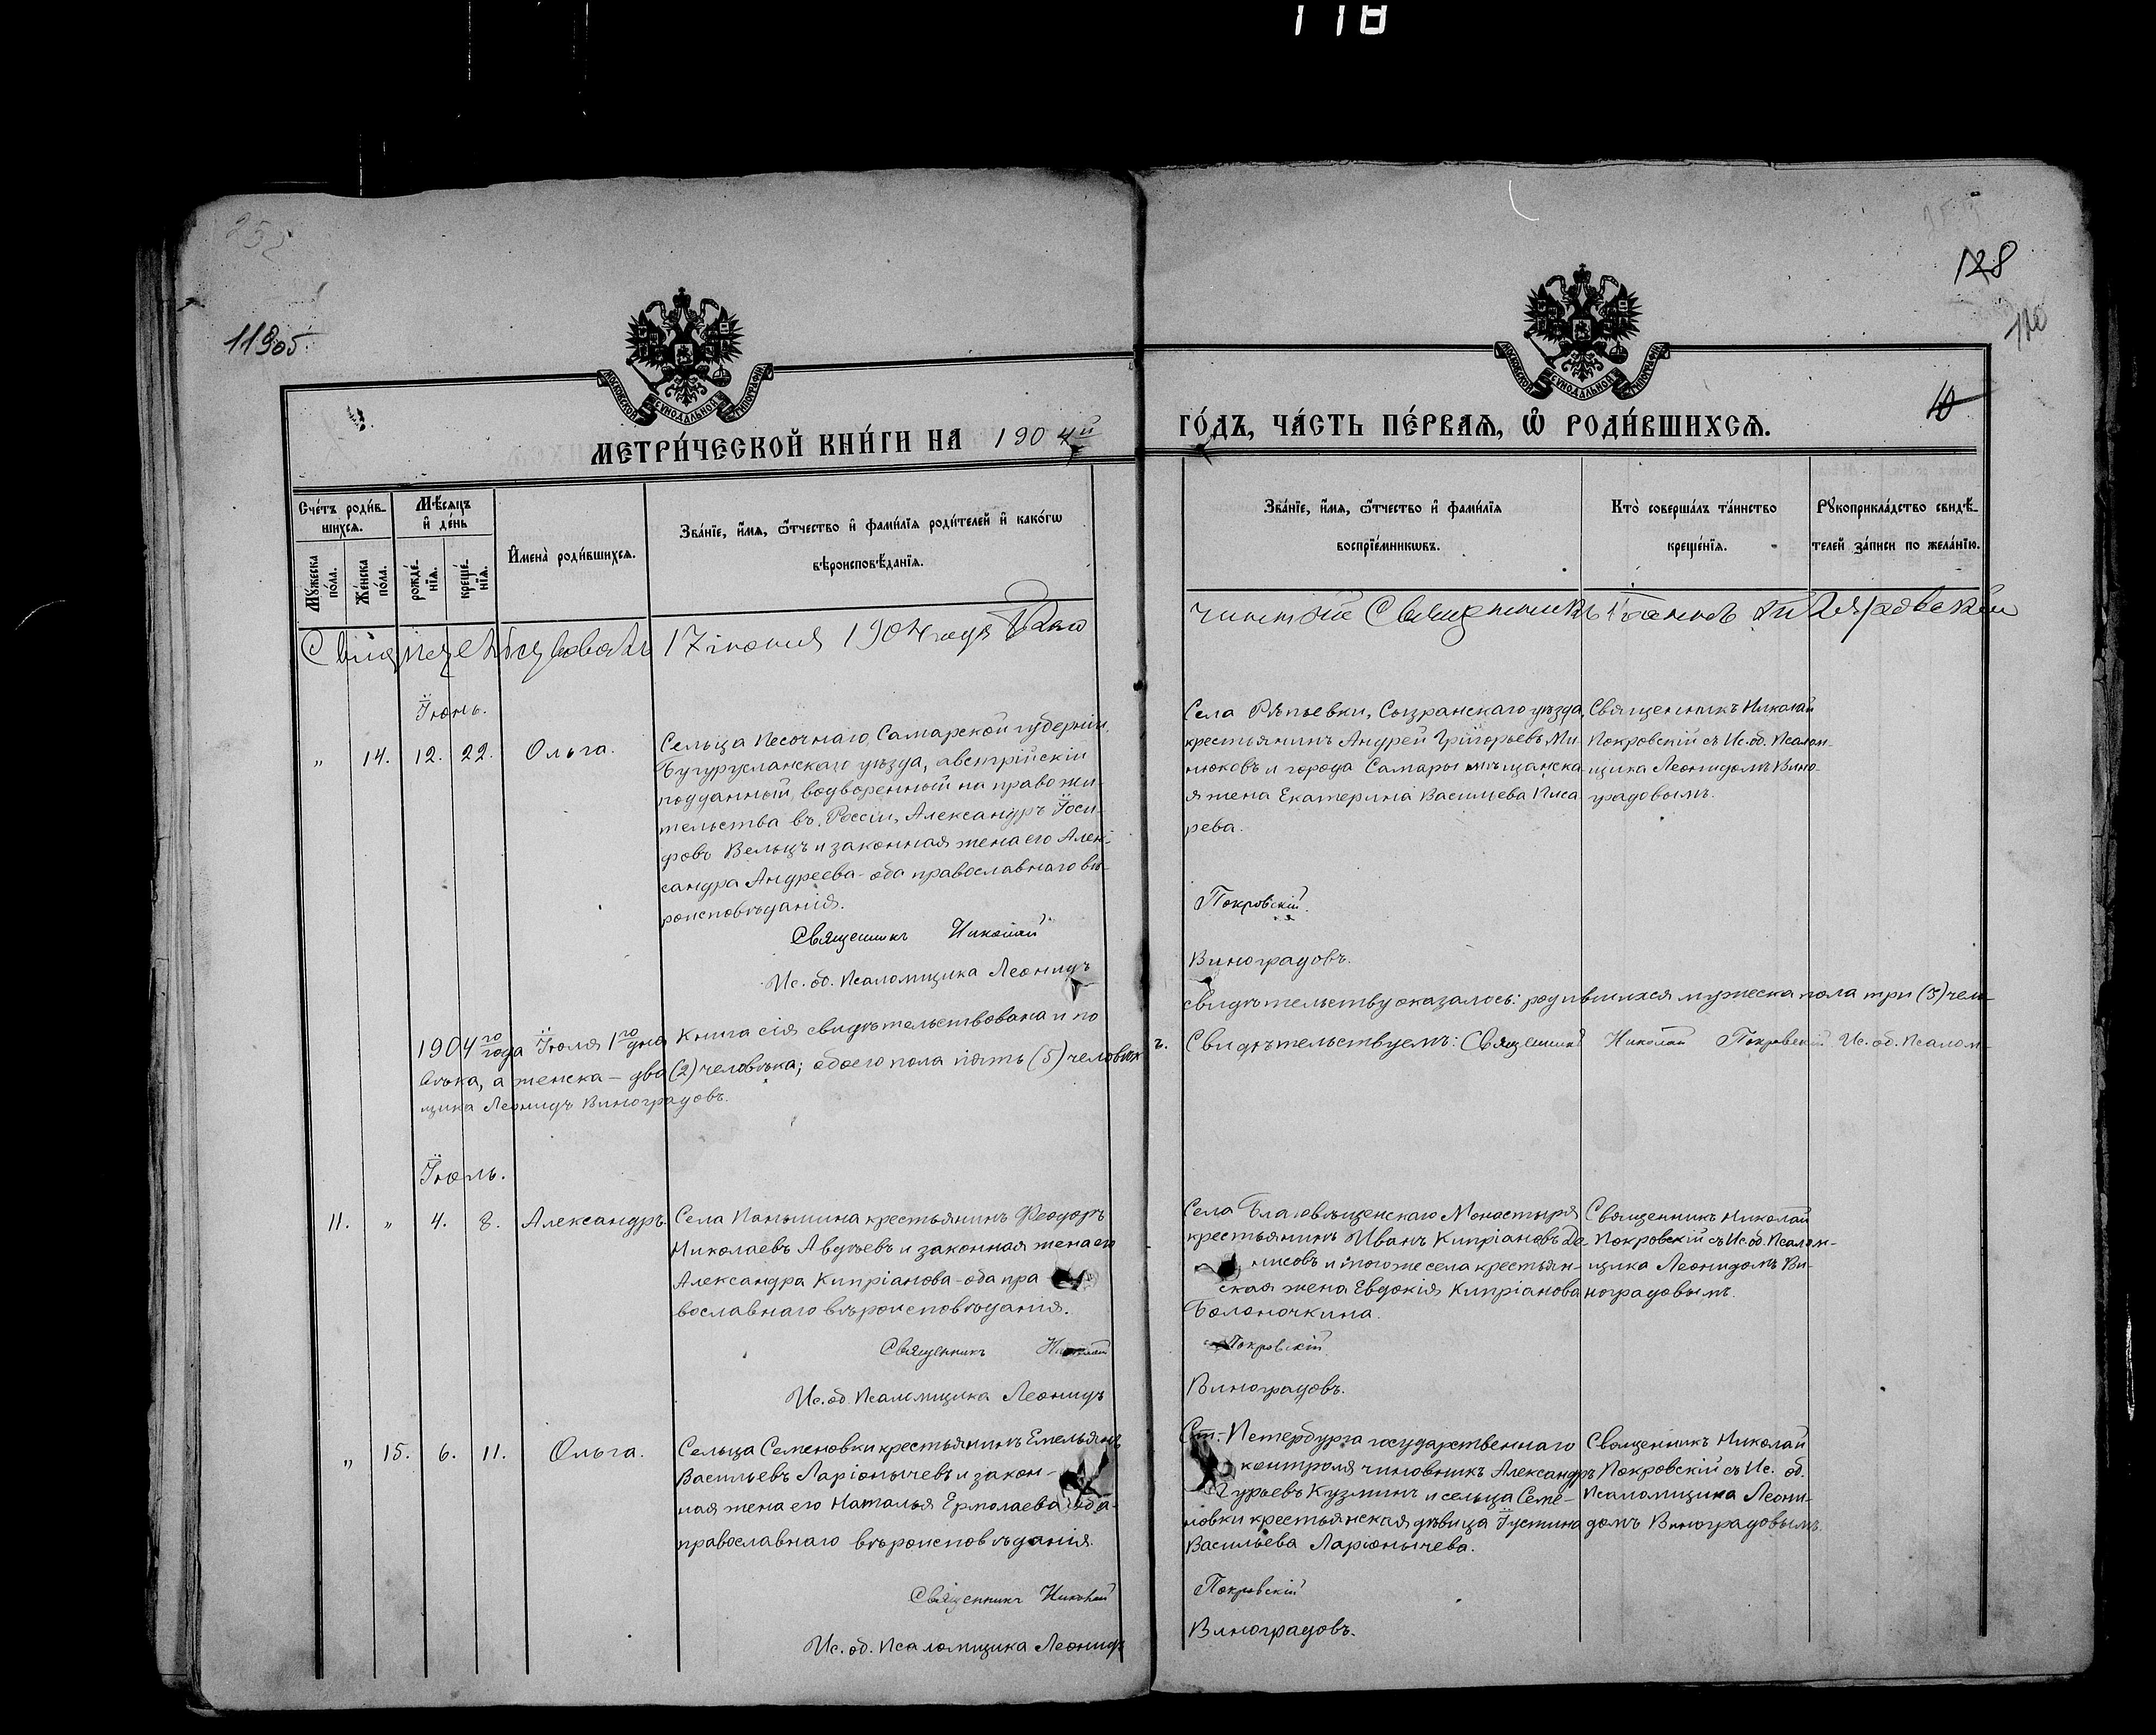 118
128
110
11905.
10
МОСКОВСКОЙ СѴНОДАЛЬНОЙ ТИПОГРАФІИ
МОСКОВСКОЙ СѴНОДАЛЬНОЙ ТИПОГРАФІИ
МЕТРИ́ЧЕСКОЙ КНИ́ГИ НА 1904й ГО́ДЪ, ЧА́СТЬ ПЕ́РВАѦ, Ѡ҆ РОДИ́ВШИХСѦ.
Сче́тъ роди́в-
шихсѧ.
Мꙋ́жеска
по́ла.
Же́нска
по́ла.
Мѣ́сѧцъ
и҆ де́нь
рожде́-
нїѧ.
креще́-
нїѧ.
И҆мена̀ роди́вшихсѧ.
Зва́нїе, и҆́мѧ, ѻ҆́тчество и҆ фами́лїѧ роди́телей и҆ како́гѡ
вѣроисповѣ́данїѧ.
Зва́нїе, и҆́мѧ, ѻ҆́тчество и҆ фами́лїѧ
воспрїе́мникѡвъ.
Кто̀ соверша́лъ та́инство
креще́нїѧ.
Рꙋкоприкла́дство свидѣ́-
телей за́писи по жела́нїю.
Свидетельствовалъ 17 іюня 1904 года Благо
чинный Священникъ Іоаннъ
Іюнь.
" 14. 12. 22. Ольга.
Сельца Песочнаго, Самарской губерніи,
Бугурусланскаго уѣзда, австрійскій
подданный, водворенный на право жи-
тельства въ Россіи, Александръ Іоси-
фовъ Вельцъ и законная жена его Алек-
сандра Андреева - оба православнаго вѣ-
роисповѣданія.
Священникъ Николай
Ис. об. Псаломщика Леонидъ
Села Рѣпьевки, Сызранскаго уѣзда,
крестьянинъ Андрей Григорьевъ Ми
нюковъ и города Самары мѣщанска-
я жена Екатерина Васильева Писа
рева.
Покровскій.
Виноградовъ.
Священникъ Николай
Покровскій съ Ис. об. Псалом-
щика Леонидомъ Вино-
градовымъ.
1904го года Іюля 1го дня Книга сія свидѣтельствована и по свидѣтельству оказалось: родившихся мужеска пола три (3) чел-
овѣка, а женска - два (2) человѣка; обоего пола пять (5) человѣкъ. Свидѣтельствуемъ: Священникъ Николай Покровскій Ис. об. Псалом-
щика Леонидъ Виноградовъ.
Іюль.
11. " 4. 8. Александръ.
Села Паньшина крестьянинъ Ѳеодоръ
Николаевъ Авдѣевъ и законная жена его
Александра Кипріанова - оба пра
вославнаго вѣроисповѣданія.
Священникъ Николай
Ис. об. Псаломщика Леонидъ
Села Благовѣщенскаго Монастыря
крестьянинъ Иванъ Кипріановъ
и того же села крестьян-
ская жена Евдокія Кипріанова
Болоночкина.
Покровскій
Виноградовъ.
Священникъ Николай
Покровскій съ Ис. об. Псалом-
щика Леонидомъ Ви-
ноградовымъ.
" 15. 6. 11. Ольга.
Сельца Семеновки крестьянинъ Емельянъ
Васильевъ Ларіонычевъ и закон-
ная жена его Наталья Ермолаева - оба
православнаго вѣроисповѣданія.
Священникъ Николай
Ис. об. Псаломщика Леонидъ
Ст.-Петербурга государственнаго
контроля чиновникъ Александръ
Гурьевъ Кузминъ и сельца Семе-
новки крестьянская дѣвица Іустина
Васильева Ларіонычева.
Покровскій
Виноградовъ.
Священникъ Николай
Покровскій съ Ис. об.
Псаломщика Леони-
домъ Виноградовымъ.